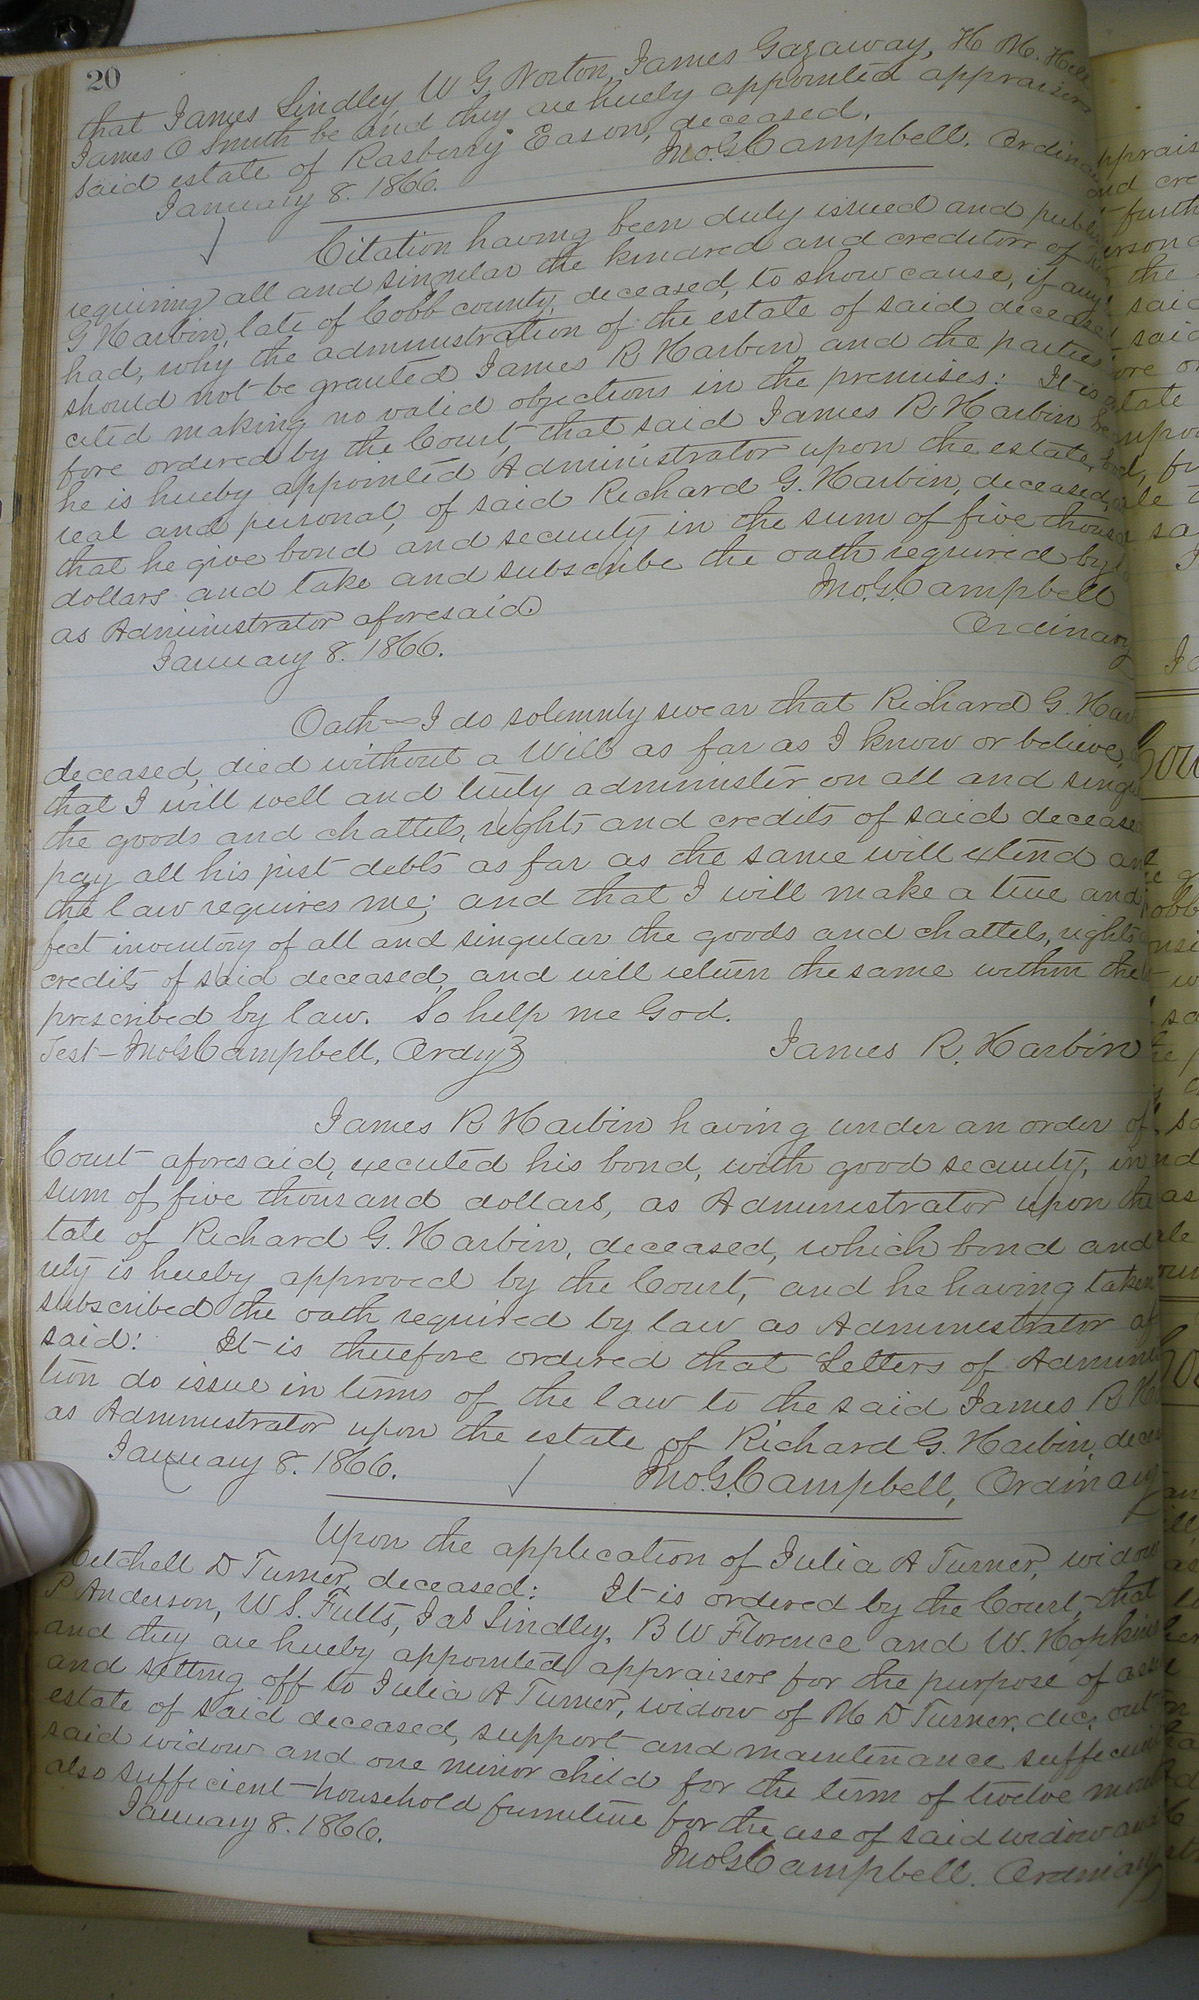 20
that James Lindley, W G Norton, James Gazaway, H M.
James O Smith be and they are hereby appointed appraisers
said estate of Rasberry Eason, deceased.
Jno. G. Campbell. Ordinary
January 8. 1866.
Citation having been duly issued and
requiring all and singular the kindred and creditors of
G Harbin, late of Cobb county, deceased, to show cause, if any
had, why the administration of the estate of said deceased
should not be granted James R Harbin, and the parties
cited making no valid objections in the premises: It is
fore ordered by the Court, that said James R Harbin be
he is hereby appointed Administrator upon the estate,
real and personal, of said Richard G. Harbin, deceased,
that he give bond and security in the sum of five thous
dollars and take and subscribe the oath required by
as Administrator aforesaid.
Jno. G. Campbell
January 8. 1866.
Ordinary
Oath—I do solemnly swear that Richard G. Har
deceased, died without a Will as far as I know or believe,
that I will well and truly administer on all and singu
the goods and chattels, rights and credits of said decease
pay all his just debts as far as the same will extend
the law requires me; and that I will make a true and
fect inventory of all and singular the goods and chattels, rights
credits of said deceased, and will return the same within the
prescribed by law. So help me God.
Test—Jno G Campbell, Ordny} James R. Harbin
James R Harbin having under an order of
Court aforesaid, executed his bond, with good security, in
sum of five thousand dollars, as Administrator upon the
tate of Richard G. Harbin, deceased, which bond and
rity is hereby approved by the Court, and he having taken
subscribed the oath required by law as Administrator af
said: It is therefore ordered that Letters of Admini
tion do issue in terms of the law to the said James R H
as Administrator upon the estate of Richard G. Harbin, dece
January 8. 1866. Jno. G. Campbell, Ordinary
Upon the application of Julia A Turner, widow
Mitchell D Turner, deceased: It is ordered by the Court, that
P Anderson, W. S. Fults, Jas Lindley, B W Florence and W. Hopkins
and they are hereby appointed appraisers for the purpose of
and setting off to Julia A Turner, widow of M D Turner, dec, out
estate of said deceased, support and maintenance sufficient
said widow and one minor child for the term of twelve month
also sufficient household furniture for the use of said widow and
January 8. 1866.
Jno G Campbell. Ordinary